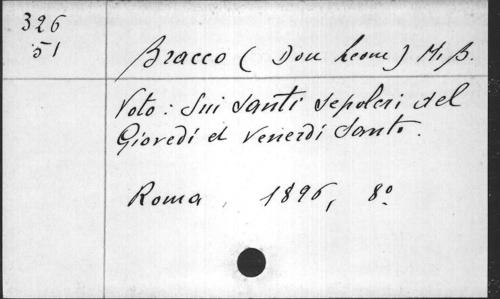 326
51
Bracco (Don Leone) M. B.
Voto: Sui Santi Sepolcri del
Giovedì et Venerdì Santo.
Roma, 1896, 8º